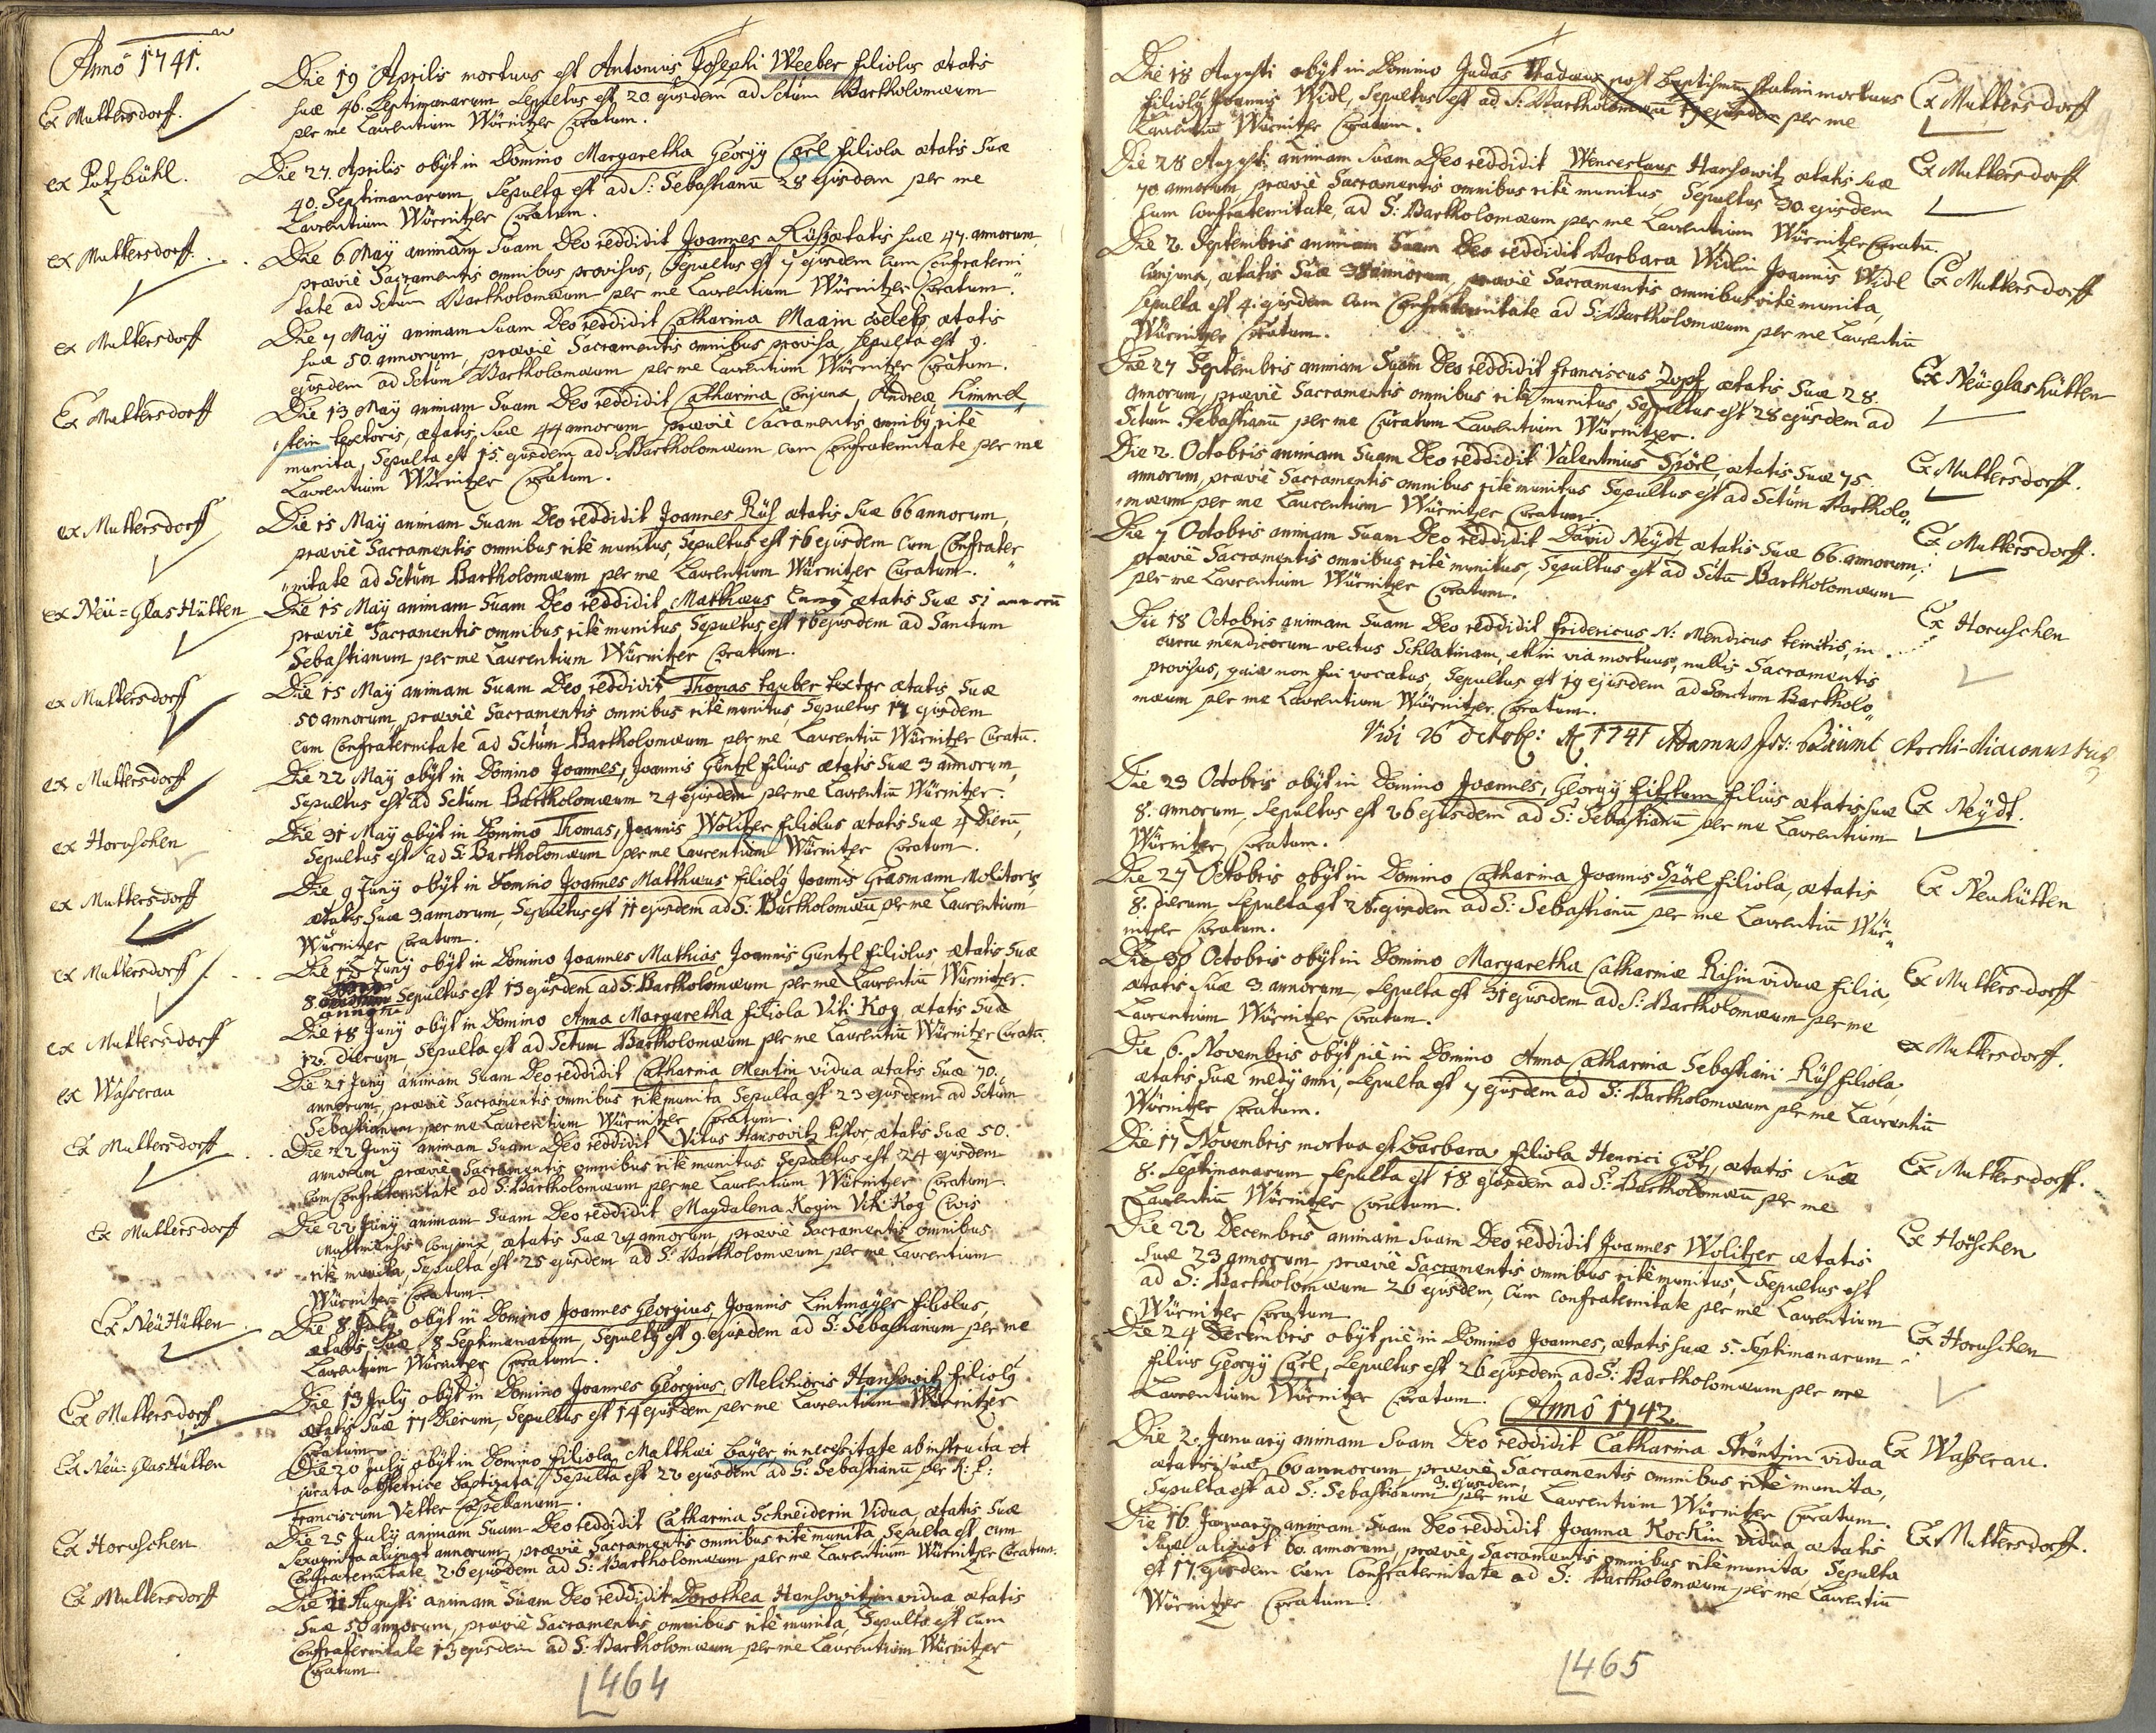 Anno 1741.
Ex Muttersdorff.
Die 19 Aprilis mortuus est Antonius Josephi Weeber filiolus ætatis
suæ 46. Septimanarum Sepultus est 20 ejusdem ad Sctum Bartholomæum
per me Laurentium Würnitzer Curatum.
ex Putzbühl.
Die 27. Aprilis obijt in Domino Margaretha Georgij Carl filiola ætatis suæ
40. Septimanarum, Sepulta est ad S: Sebastianū 28 ejusdem per me
Laurentium Würnitzer Curatum.
ex Muttersdorff.
Die 6 Maij animam Suam Deo reddidit Joannes Rüs ætatis suæ 47. annorum,
præviè Sacramentis omnibus provisus, Sepultus est 7 ejusdem cum Confraterni
tate ad Sctum Bartholomæum per me Laurentium Würnitzer Curatum.
ex Muttersdorff
Die 7 Maij animam suam Deo reddidit Catharina Maain cœlebs, ætatis
suæ 50. annorum, præviè Sacramentis omnibus provisa, sepulta est 9.
ejusdem ad Sctum Bartholomæum per me Laurentium Würnitzer Curatum.
Ex Muttersdorff
Die 13 Maij animam Suam Deo reddidit Catharina Conjunx, Andreæ Himmel
stein textoris, ætatis suæ 44 annorum præviè Sacramentis omnibq ritè
munita, Sepulta est 15. ejusdem ad S. Bartholomæum cum Confraternitate per me
Laurentium Würnitzer Curatum.
ex Muttersdorff
Die 15 Maij animam Suam Deo reddidit Joannes Rüs ætatis suæ 66 annorum,
præviè Sacramentis omnibus ritè munitus, Sepultus est 16 ejusdem cum Confrater
nitate ad Sctum Bartholomæum per me Laurentium Würnitzer Curatum.
ex Neü=Glas Hütten
Die 15 Maij animam Suam Deo reddidit Matthæus ætatis Suæ 51 annorū
præviè Sacramentis omnibus ritè munitus Sepultus est 16 ejusdem ad Sanctum
Sebastianum per me Laurentium Würnitzer Curatum.
ex Muttersdorff
Die 15 Maij animam Suam Deo reddidit Thomas tauber textor ætatis suæ
50 annorum præviè Sacramentis omnibus ritè munitus, Sepultus 17 ejusdem
cum Confraternitate ad Sctum Bartholomæum per me Laurentiū Würnitzer Curatū.
ex Muttersdorff
Die 22 Maij obijt in Domino Joannes, Joannis Güntzl filius ætatis suæ 3 annorum,
Sepultus est ad Sctum Bartholomæum 24 ejusdem per me Laurentiū Würnitzer.
ex Horuschen
Die 31 Maij obijt in Domino Thomas, Joannis Wolitzer filiolus ætatis suæ 4 Dierū,
Sepultus est ad S: Bartholomæum per me Laurentium Würnitzer Curatum.
ex Muttersdorff
Die 9 Junij obijt in Domino Joannes Matthæus filiolq Joannis Grasmann Molitoris
ætatis suæ 3 annorum, Sepultus est 11 ejusdem ad S: Bartholomæū per me Laurentium
Würnitzer Curatum.
ex Muttersdorff
Die 12 Junij obijt in Domino Joannes Mathias Joannis Güntzl filiolus ætatis suæ
8 Sepultus est 13 ejusdem ad S: Bartholomæum per me Laurentiū Würnitzer.
ex Muttersdorff
Die 18 Junij obijt in Domino Anna Margaretha filiola Viti Kog, ætatis suæ
12. dierum, Sepulta est ad Sctum Bartholomæum per me Laurentiū Würnitzer Curatū.
ex Wasserau
Die 21 Junij animam Suam Deo reddidit Catharina Mentin vidua ætatis suæ 70.
annorum, præviè Sacramentis omnibus ritè munita Sepulta est 23 ejusdem ad Sctum
Sebastianum per me Laurentium Würnitzer Curatum.
Ex Muttersdorff
Die 22 Junij animam Suam Deo reddidit Vitus Hansovitz Pistor ætatis suæ 50.
annorum præviè Sacramentis omnibus ritè munitus Sepultus est 24 ejusdem
cum Confraternitate ad S: Bartholomæum per me Laurentium Würnitzer Curatum.
Ex Muttersdorff
Die 22 Junij animam Suam Deo reddidit Magdalena Kogin Viti Kog Civis
Conjunx ætatis suæ 24 annorum, præviè Sacramentis omnibus
ritè munita, Sepulta est 25 ejusdem ad S: Bartholomæum per me Laurentium
Würnitzer Curatum
Ex NeüHütten
Die 8 Julij obijt in Domino Joannes Georgius, Joannis Lintmayer filiolus,
ætatis suæ 8 Septimanarum, Sepultq est 9. ejusdem ad S: Sebastianum per me
Laurentium Würnitzer Curatum.
Ex Muttersdorf
Die 13 Julij obijt in Domino Joannes Georgius, Melchioris Hansowitz filiolq
ætatis suæ 17 dierum, Sepultus est 14 ejusdem per me Laurentium Würnitzer
Curatum
Ex Neü=Glas Hütten
Die 20 Julij obijt in Domino filiola Matthæi bayer, in necessitate ab instructa et
jurata obstetrice baptizata, Sepulta est 22 ejusdem ad S: Sebastianū per R: P:
Franciscum Vetter Cappelanum.
Ex Horuschen
Die 25 Julij animam Suam Deo reddidit Catharina Schneiderin Vidua, ætatis suæ
Sexaginta aliquot annorum, præviè Sacramentis omnibus ritè munita Sepulta est, cum
Confraternitate 26 ejusdem ad S: Bartholomæum per me Laurentium Würnitzer Curatum.
Ex Muttersdorff
Die 11 Augusti animam Suam Deo reddidit Dorothea Hansowitzin vidua ætatis
suæ 50 annorum, præviè Sacramentis omnibus ritè munita, Sepulta est cum
Confraternitate 13 ejusdem ad S: Bartholomæum per me Laurentium Würnitzer
Curatum.
464
Die 18 Augusti obijt in Domino Judas Thadæus post baptismū statim mortuus
filiolq Joannis Widl, Sepultus est ad S: Bartholomæū 19 ejusdem per me
Laurentium Würnitzer Curatum.
Ex Muttersdorff
Die 28 Augusti animam Suam Deo reddidit Wenceslaus Hansowitz ætatis suæ
70 annorum, præviè Sacramentis omnibus ritè munitus, Sepultus 30 ejusdem
cum Confraternitate, ad S: Bartholomæum per me Laurentium Würnitzer Curatū.
Ex Muttersdorff
Die 2. Septembris animam Suam Deo reddidit Barbara Widlin Joannis Widl
Conjunx, ætatis suæ 38 annorum, præviè Sacramentis omnibus ritè munita,
sepulta est 4. ejusdem cum Confraternitate ad S: Bartholomæum per me Laurentiū
Würnitzer Curatum.
Ex Muttersdorff
Die 27 Septembris animam Suam Deo reddidit franciscus Zopf, ætatis suæ 28.
annorum, præviè Sacramentis omnibus ritè munitus, Sepultus est 28 ejusdem ad
Sctum Sebastianū per me Curatum Laurentium Würnitzer.
Ex Neü=glashütten
Die 2. Octobris animam Suam Deo reddidit Valentinus Spörl, ætatis suæ 75.
annorum, præviè Sacramentis omnibus ritè munitus Sepultus est ad Sctum Bartholo
mæum per me Laurentium Würnitzer Curatum.
Ex Muttersdorff.
Die 7 Octobris animam Suam Deo reddidit David Neydt, ætatis suæ 66 annorum,
præviè Sacramentis omnibus ritè munitus, Sepultus est ad Sctū Bartholomæum
per me Laurentium Würnitzer Curatum.
Ex Muttersdorff.
Die 18 Octobris animam Suam Deo reddidit fridericus N: Mendicus in
curru mendicorum vectus Schlatinam, et in via mortuus, nullis Sacramentis
provisus, quia non fui vocatus, Sepultus est 19 ejusdem ad Sanctum Bartholo
mæum per me Laurentium Würnitzer Curatum.
Ex Horuschen
Vidi 26 Octob: A 1741 Adamus Jos: Archi-Diaconus
Die 23 Octobris obijt in Domino Joannes, Georgij fitztum filius ætatis suæ
8. annorum, Sepultus est 26 ejusdem ad S: Sebastianū per me Laurentium
Würnitzer Curatum.
Ex Neydt.
Die 27 Octobris obijt in Domino Catharina Joannis Spörl filiola, ætatis
8. dierum Sepulta est 28. ejusdem ad S: Sebastianū per me Laurentiū Wür
nitzer Curatum.
Ex Neuhütten
Die 30 Octobris obijt in Domino Margaretha Catharinæ Risin viduæ filia,
ætatis suæ 3 annorum, Sepulta est 31 ejusdem ad S: Bartholomæum per me
Laurentium Würnitzer Curatum.
Ex Muttersdorff
Die 6. Novembris obijt piè in Domino Anna Catharina Sebastiani Rüs filiola,
ætatis suæ medij anni, Sepulta est 7 ejusdem ad S: Bartholomæum per me Laurentiū
Würnitzer Curatum.
ex Muttersdorff.
Die 17 Novembris mortua est Barbara filiola Henrici Götz, ætatis suæ
8. Septimanarum, Sepulta est 18 ejusdem ad S: Bartholomæū per me
Laurentiū Würnitzer Curatum.
Ex Muttersdorff.
Die 22 Decembris animam Suam Deo reddidit Joannes Wolitzer ætatis
suæ 23 annorum præviè Sacramentis omnibus ritè munitus, Sepultus est
ad S: Bartholomæum 26 ejusdem, cum Confraternitate per me Laurentium
Würnitzer Curatum
Ex Horschen
Die 24 Decembris obijt piè in Domino Joannes, ætatis suæ 5. Septimanarum
filius Georgij Carl, Sepultus est 26 ejusdem ad S: Bartholomæum per me
Laurentium Würnitzer Curatum.
Ex Horuschen
Anno 1742
Die 2. Januarij animam Suam Deo reddidit Catharina vidua
ætatis suæ 60 annorum præviè Sacramentis omnibus ritè munita,
Sepulta est ad S: Sebastianum 3. ejusdem, per me Laurentium Würnitzer Curatum.
Ex Wasserau.
Die 16. Januarij animam Suam Deo reddidit Joanna Kockin vidua ætatis
suæ aliquot 60. annorum, præviè Sacramentis omnibus ritè munita, Sepulta
est 17. ejusdem cum Confraternitate ad S: Bartholomæum per me Laurentiū
Würnitzer Curatum
Ex Muttersdorff.
465